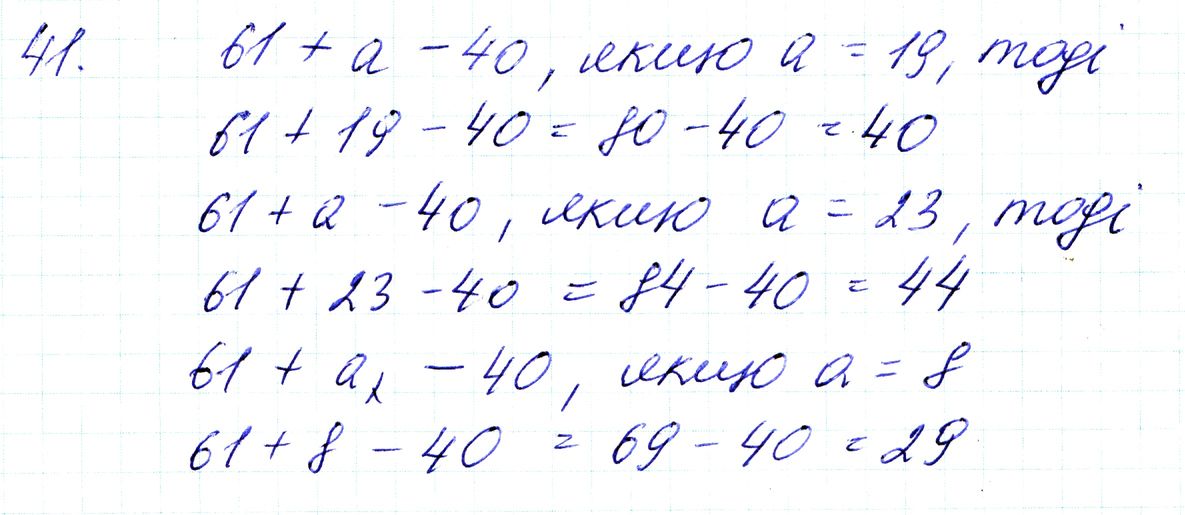 41. 61 + a - 40, якщо a = 19, тоді
61 + 19 - 40 = 80 - 40 = 40
61 + a - 40, якщо a = 23, тоді
61 + 23 - 40 = 84 - 40 = 44
61 + a, - 40, якщо a = 8
61 + 8 - 40 = 69 - 40 = 29